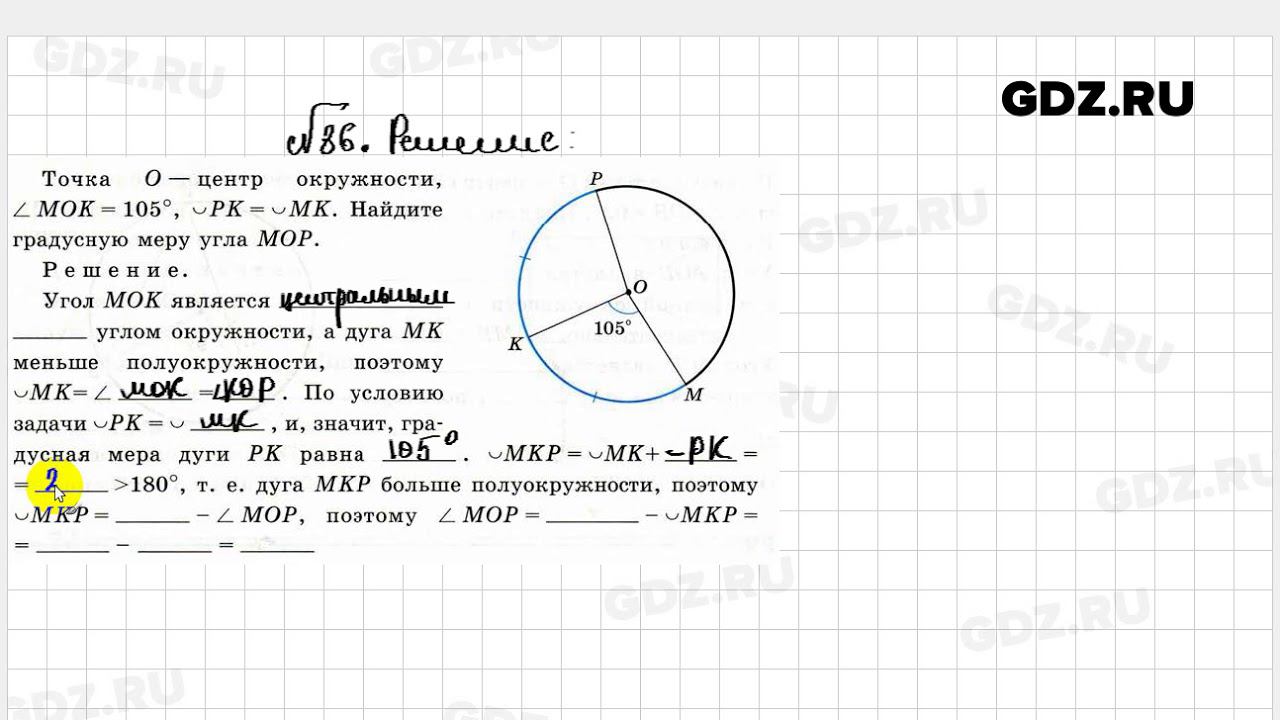 GDZ.RU
GDZ.RU
GDZ.RU
№86. Решение:
Точка O — центр окружности,
∠ MOK = 105°, ◡PK = ◡MK. Найдите
градусную меру угла MOP.
Решение.
Угол MOK является центральным
______ углом окружности, а дуга MK
меньше полуокружности, поэтому
◡MK = ∠ МОК = ∠КОР. По условию
задачи ◡PK = ◡ МК, и, значит, гра-
дусная мера дуги PK равна 105°. ◡MKP = ◡MK + ◡РК =
= 2 >180°, т. е. дуга MKP больше полуокружности, поэтому
◡MKP = ______ − ∠ MOP, поэтому ∠ MOP = ______ − ◡MKP =
= ______ − ______ = ______
P
O
105°
K
M
GDZ.RU
GDZ.RU
GDZ.RU
GDZ.RU
GDZ.RU
GDZ.RU